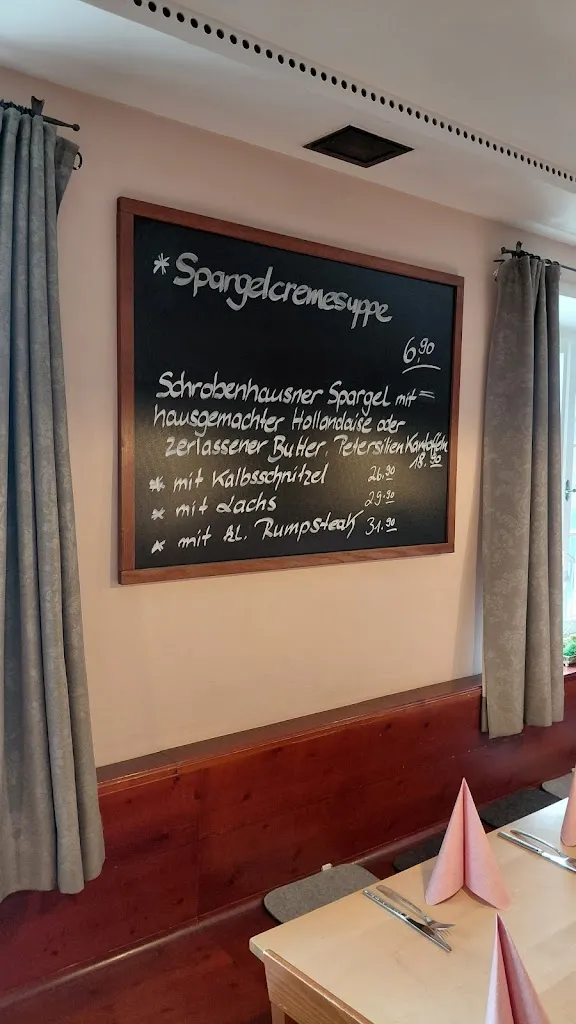 * Spargelcremesuppe
6,90
Schrobenhausner Spargel mit
hausgemachter Hollandaise oder
zerlassener Butter, Petersilien Kartoffeln
18.90
* mit Kalbsschnitzel 26.90
* mit Lachs 29.90
* mit kl. Rumpsteak 31.90